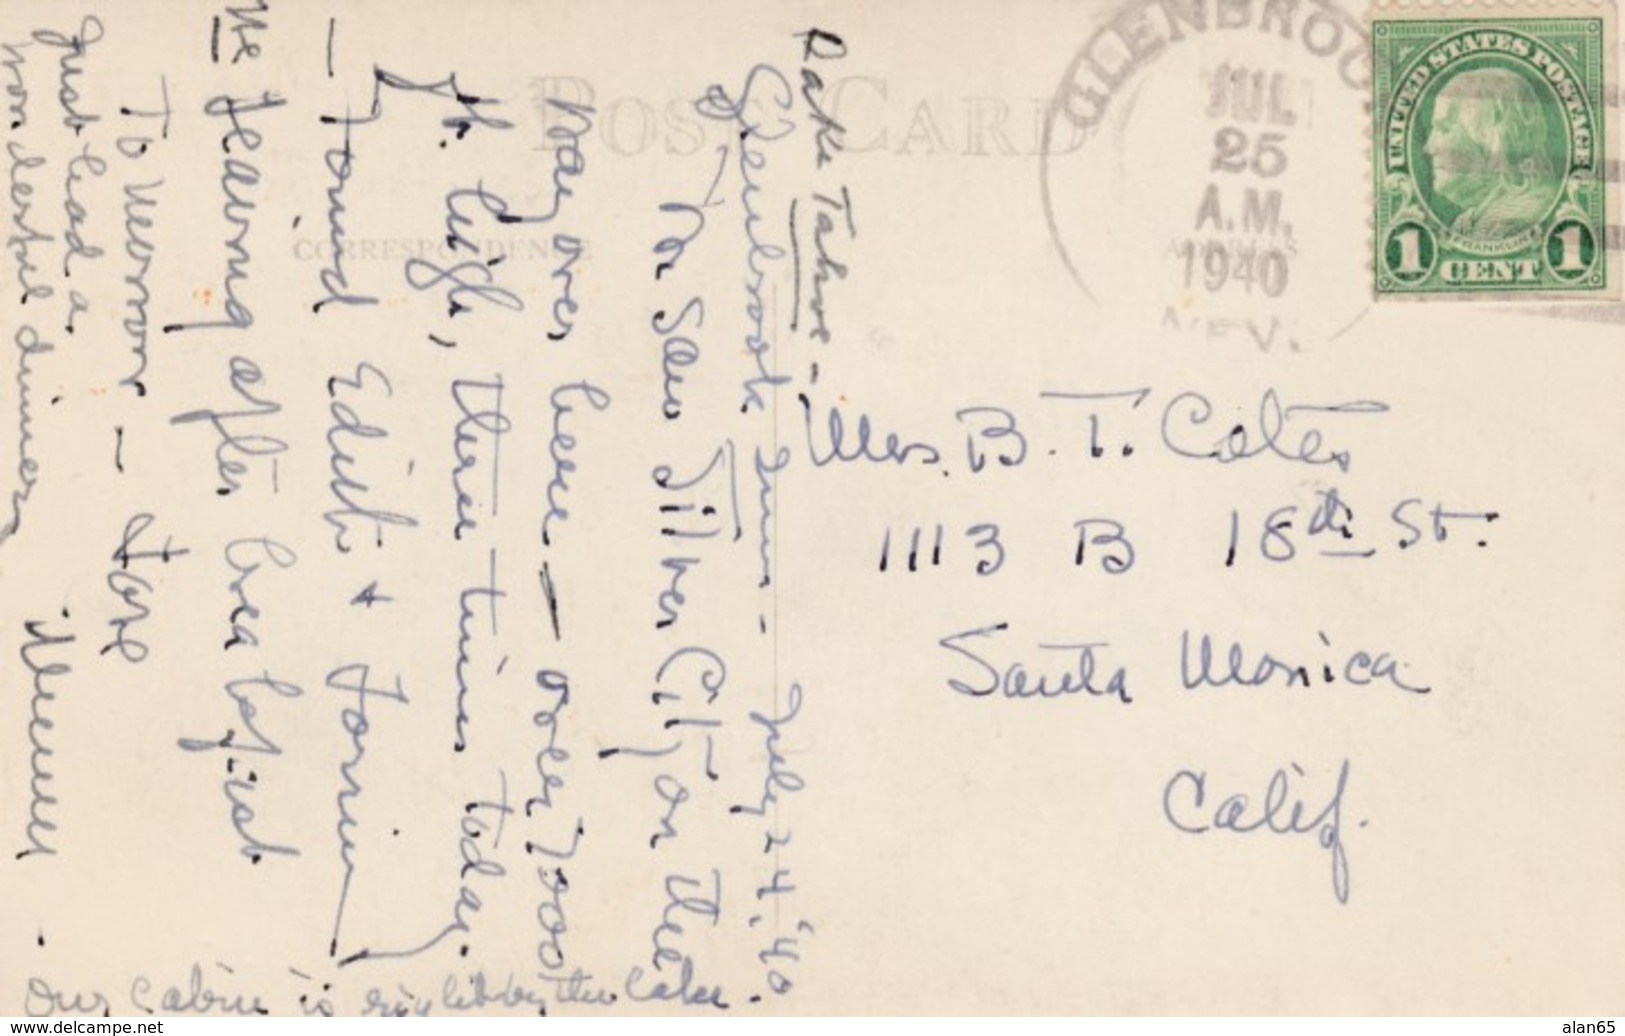 POST CARD
CORRESPONDENCE
ADDRESS
GLENBROOK
JUL
25
A.M.
1940
NEV.
UNITED STATES POSTAGE
FRANKLIN
1 CENT 1
Mrs. B. T. Cates
1113 B 18th St.
Santa Monica
Calif.
Lake Tahoe -
Glenbrook Inn - July 24, '40
I'm Saw Silver City on the
way over here — over 7000
ft. high, three times today.
— Found Edith +
We leaving after breakfast
Tomorrow — Love
Just had a
wonderful dinner
Our cabin is right by the lake.
delcampe.net
alan65